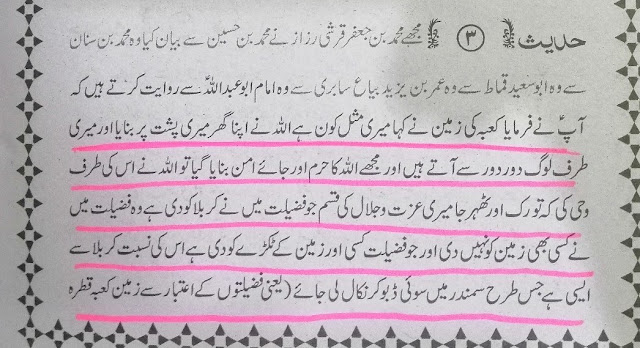 حدیث ﴿۳﴾ مجھے محمد بن جعفر قرشی رزاز نے محمد بن حسین سے بیان کیا وہ محمد بن سنان
سے وہ ابو سعید قماط سے وہ عمر بن یزید بیاع سابری سے وہ امام ابو عبداللہؑ سے روایت کرتے ہیں کہ
آپؑ نے فرمایا کعبہ کی زمین نے کہا میری مثل کون ہے اللہ نے اپنا گھر میری پشت پر بنایا اور میری
طرف لوگ دور دور سے آتے ہیں اور مجھے اللہ کا حرم اور جائے امن بنایا گیا تو اللہ نے اس کی طرف
وحی کی کہ تو رک اور ٹھہر جا میری عزت و جلال کی قسم جو فضیلت میں نے کربلا کو دی ہے وہ فضیلت میں
نے کسی بھی زمین کو نہیں دی اور جو فضیلت کسی اور زمین کے ٹکڑے کو دی ہے اس کی نسبت کربلا سے
ایسی ہے جس طرح سمندر میں سوئی ڈبو کر نکال لی جائے (یعنی فضیلتوں کے اعتبار سے زمین کعبہ قطرہ